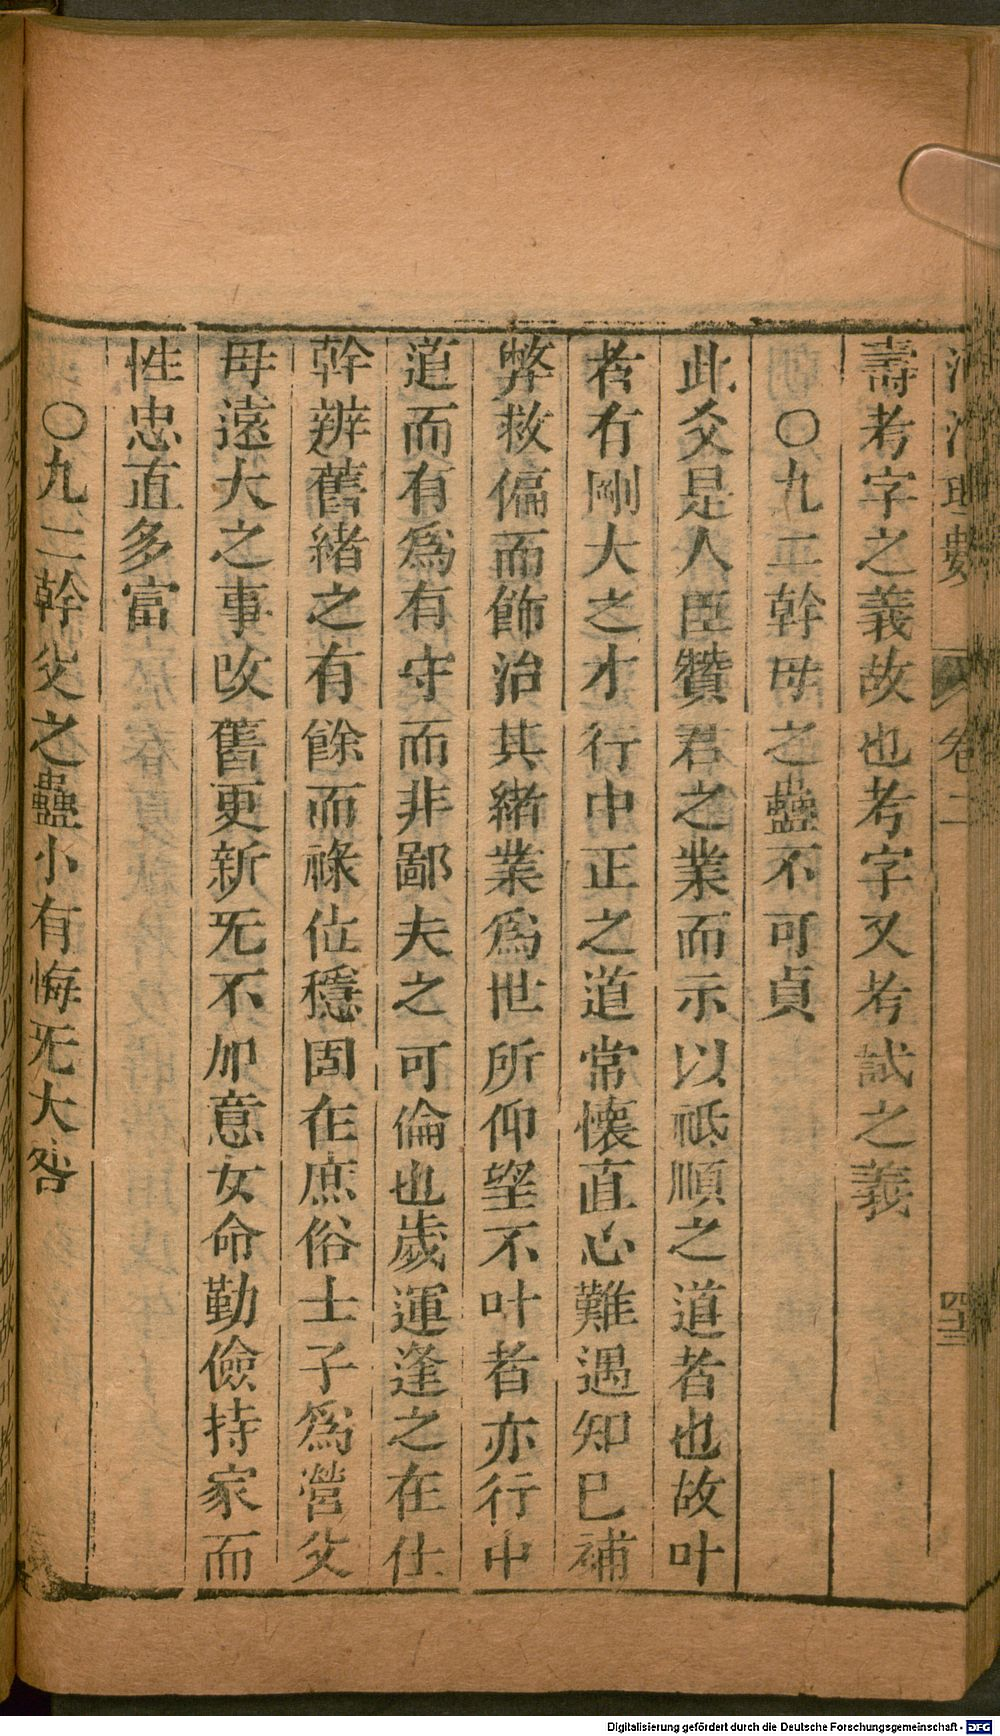 河洛理數 卷二 四十三
壽考字之義故也考字又考試之義
〇九二幹母之蠱不可貞
此爻是人臣贊君之業而示以祗順之道者也故叶
者有剛大之才行中正之道常懷直心難遇知巳補
弊救偏而飾治其緒業爲世所仰望不叶者亦行中
道而有爲有守而非鄙夫之可倫也歲運逢之在仕
幹辨舊緒之有餘而祿位穩固在庶俗士子爲營父
母遠大之事改舊更新旡不加意女命勤儉持家而
性忠直多富
〇九二幹父之蠱小有悔旡大咎
Digitalisierung gefördert durch die Deutsche Forschungsgemeinschaft - DFG